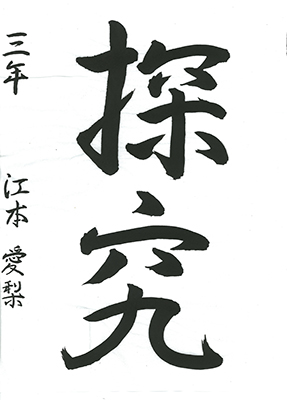 探究
三年 江本 愛梨